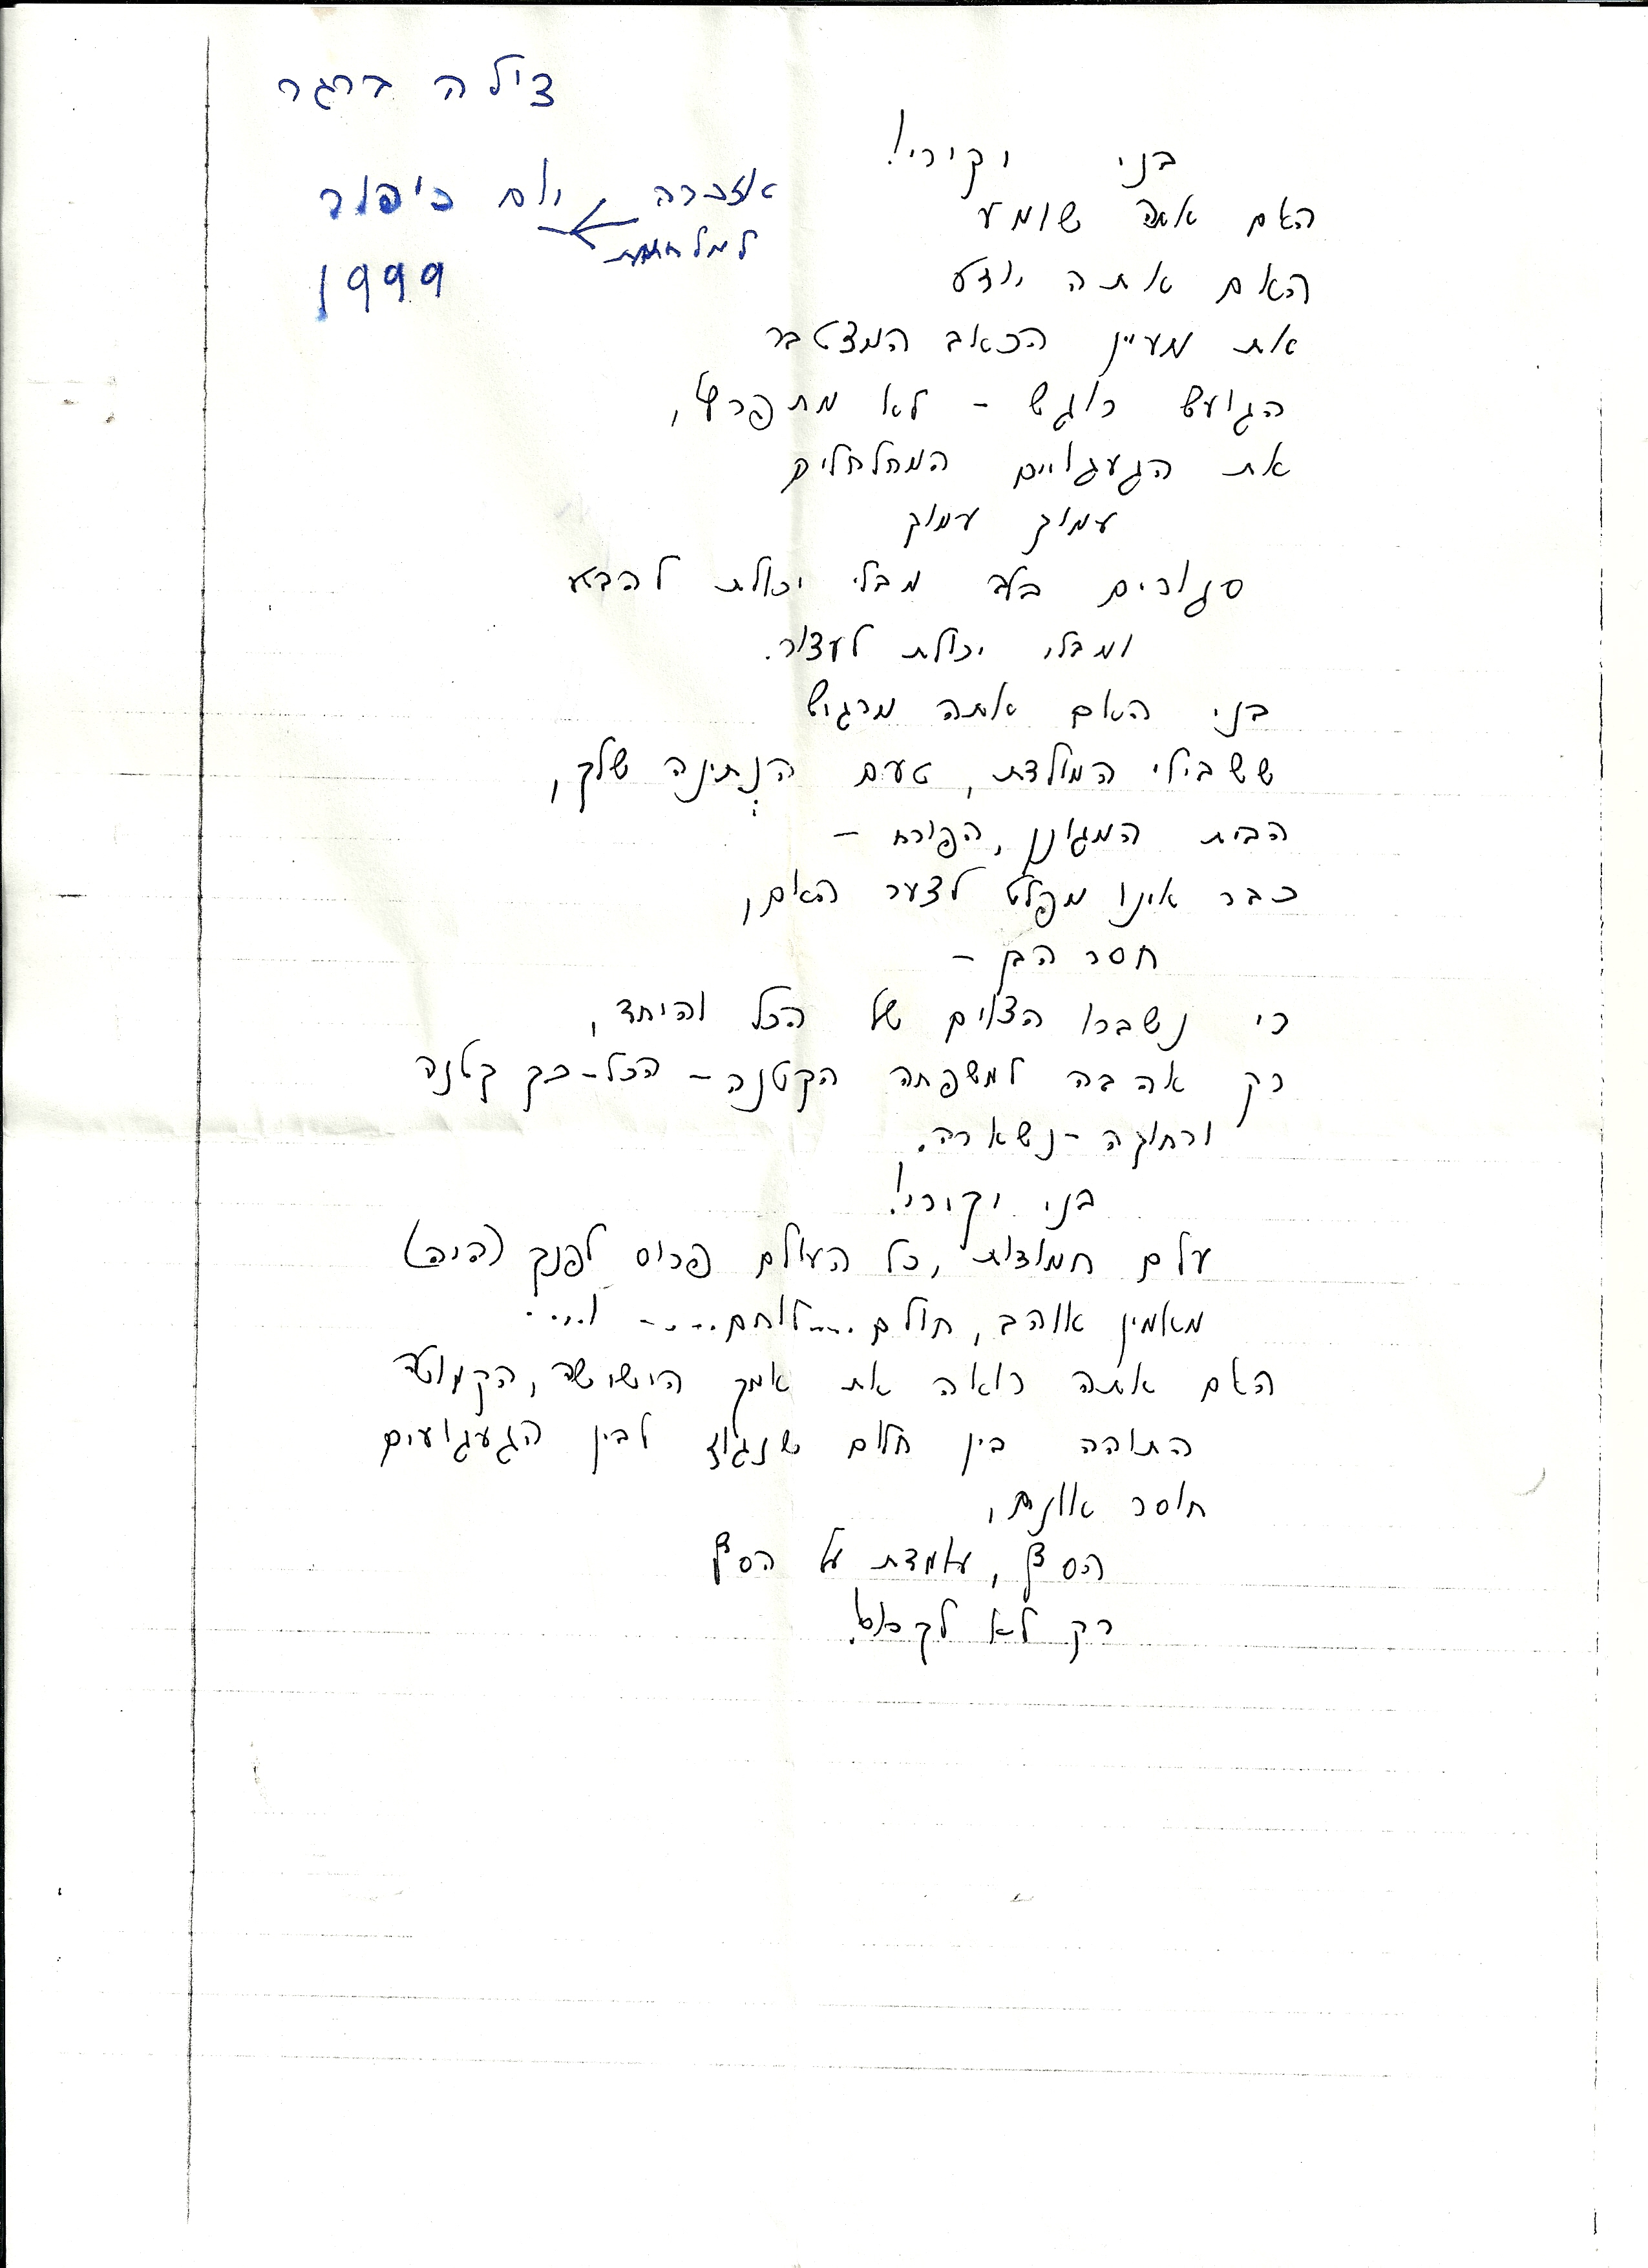 צילה ברגר
אזכרה יום כיפור
למלחמת
1999
בני יקירי!
האם אתה שומע
האם אתה יודע
את מעיין הכאב המצטבר
הגועש רוגש - לא מתפרץ,
את הגעגויים המחלחלים
עמוק עמוק
סגורים בלב מבלי יכולת להביע
ומבלי יכולת לעצור.
בני האם אתה מרגיש
ששבילי המולדת, טעם הנתינה שלך,
הבית המגונן, הפורח -
כבר אינו מפלט לצער האם,
חסר הבן -
כי נשברו הצלים של הכל והיחד,
רק אהבה למשפחה הקטנה - הכל-כך קטנה
ורחוקה - נשארה.
בני יקירי!
עלם חמודות, כל העולם פרוס לפניך (היה)
מאמין אוהב, חולם.... לוחם..... ו....
האם אתה רואה את אמך הישישה, הקמוטה
התוהה בין חלום שנגוז לבין הגעגועים
חוסר אונים,
הסף, עומדת על הסף
רק לא לקרוס!